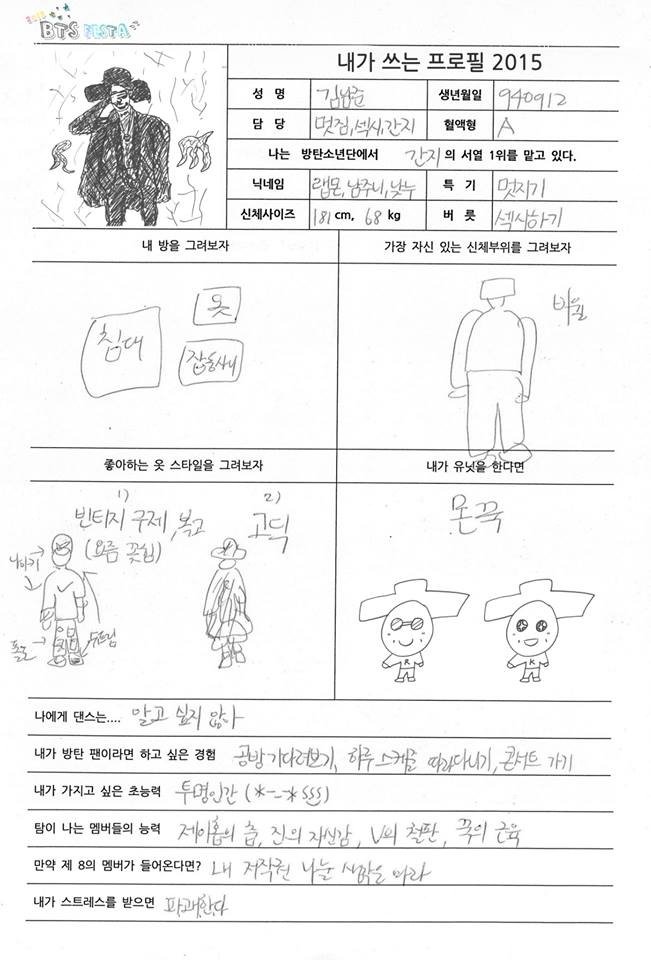 2015
BTS FESTA
내가 쓰는 프로필 2015
성 명 김남준 생년월일 940912
담 당 멋짐, 섹시, 간지 혈액형 A
나는 방탄소년단에서 간지의 서열 1위를 맡고 있다.
닉네임 랩몬, 남주니, 낮누 특 기 멋지기
신체사이즈 181 cm, 68 kg 버 릇 섹시하기
RM
내 방을 그려보자
침대
옷
잡동사니
가장 자신 있는 신체부위를 그려보자
비율
좋아하는 옷 스타일을 그려보자
1)
빈티지 구제, 복고
(요즘 꽂힘)
2)
고딕
내가 유닛을 한다면
몬꾹
K
K
나에게 댄스는.... 알고 싶지 않아
내가 방탄 팬이라면 하고 싶은 경험 공방 기다려보기, 하루 스케줄 따라다니기, 콘서트 가기
내가 가지고 싶은 초능력 투명인간 (*-_-* SSS)
탐이 나는 멤버들의 능력 제이홉의 춤, 진의 자신감, V의 철판, 꾹의 근육
만약 제 8의 멤버가 들어온다면? 내 저작권 나눌 생각을 마라
내가 스트레스를 받으면 파괴한다